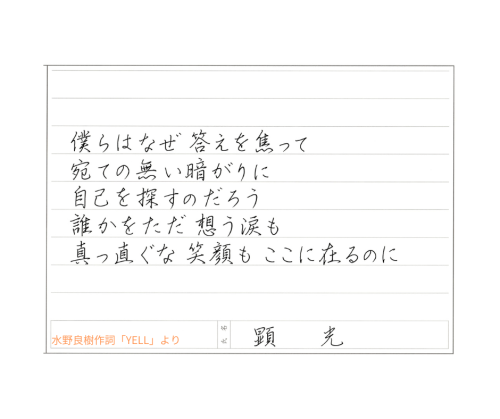 僕らはなぜ 答えを焦って
宛ての無い暗がりに
自己を探すのだろう
誰かをただ 想う涙も
真っ直ぐな 笑顔も ここに在るのに
水野良樹作詞「YELL」より
顕 光